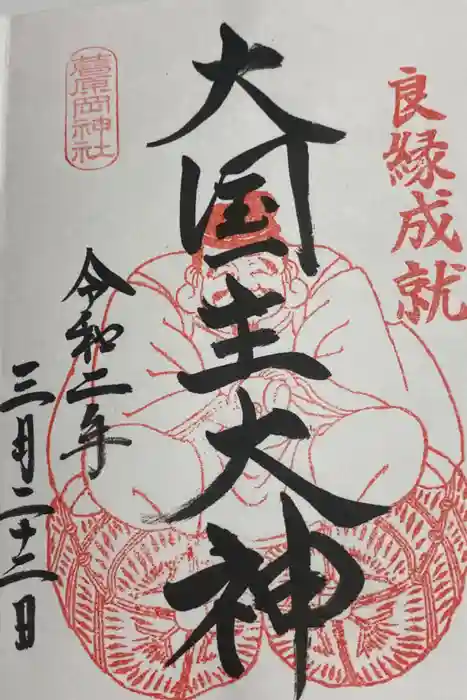 良縁成就
大国主大神
葛原岡神社
令和二年
三月二十二日